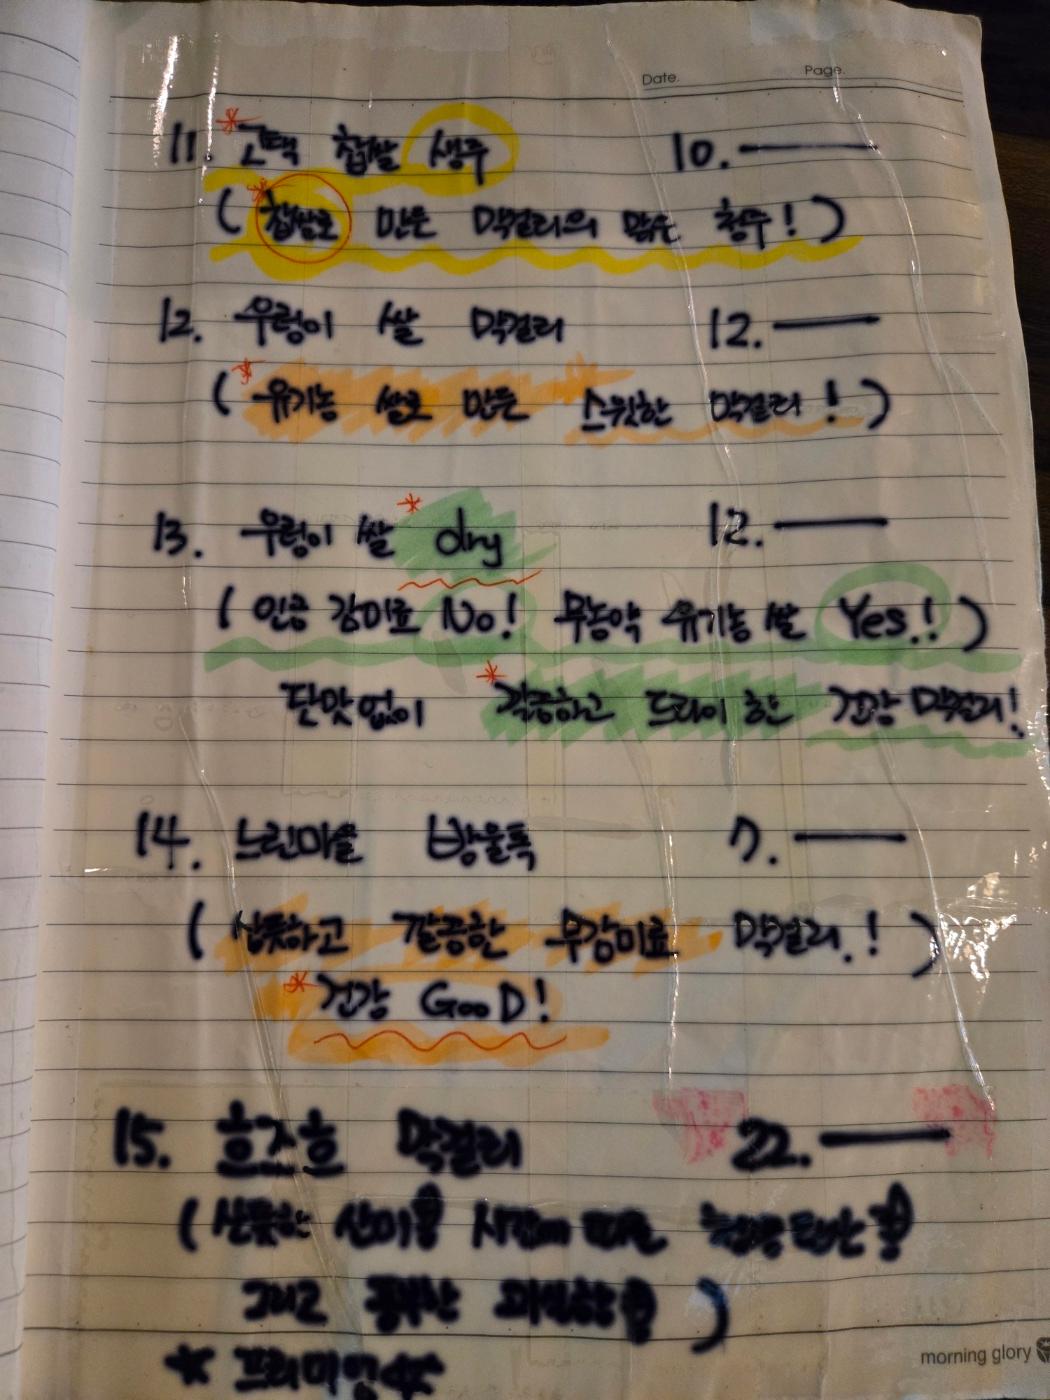 Date. Page.
11. *고택 찹쌀 생주 10.—
(*찹쌀로 만든 막걸리의 맑은 청주!)
12. 우렁이 쌀 막걸리 12.—
(*유기농 쌀로 만든 스윗한 막걸리!)
13. 우렁이 쌀 *dry 12.—
(인공 감미료 No! 무농약 유기농 쌀 Yes.!)
단맛 없이 *깔끔하고 드라이 한 건강 막걸리!
14. 느린마을 방울톡 7.—
(산뜻하고 깔끔한 무감미료 막걸리.!)
*건강 GooD!
15. 흐즈흐 막걸리 22.—
(산뜻한 산미! 시간에 따른
그리고 )
*프리미엄*
morning glory